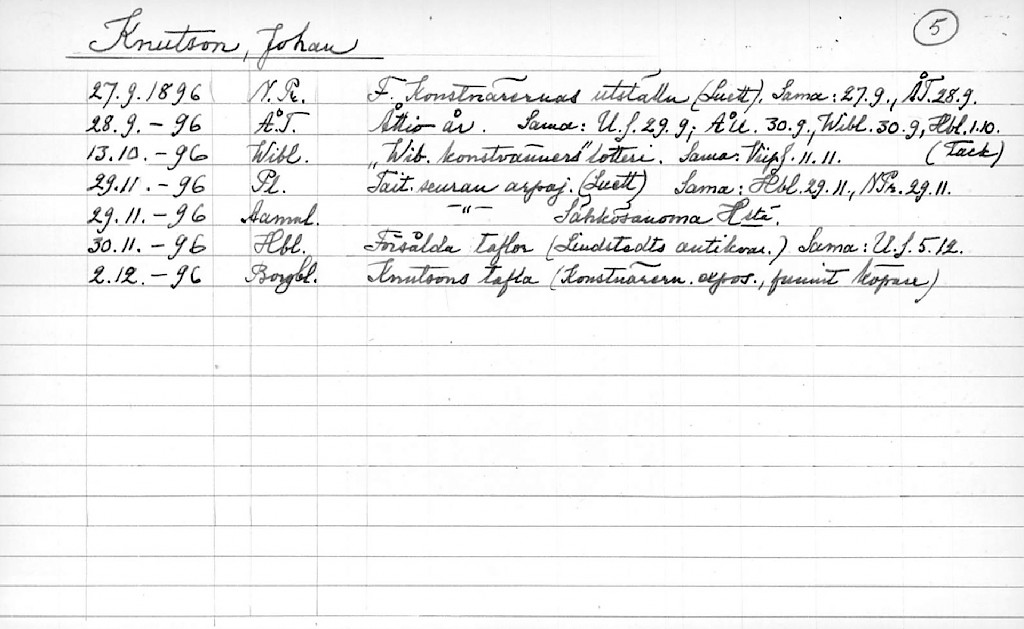 Knutson, Johan 5
27.9.1896 N.Pr. F. Konstnärernas utställn (Luett). Sama: 27.9., ÅT. 28.9.
28.9.-96 Å.T. Åttio år. Sama: U.S. 29.9; ÅU. 30.9., Wibl. 30.9, Hbl. 1.10.
(Tack)
13.10.-96 Wibl. "Wib. konstvänners" lotteri. Sama: Viipf. 11.11.
29.11.-96 Pl. Tait. seuran arpaj. (Luett) Sama: Hbl. 29.11., NPr. 29.11.
29.11.-96 Aamul. -"- Sähkösanoma Hstä.
30.11.-96 Hbl. Försålda taflor (Lindstedts antikvar.) Sama: U.S. 5.12.
2.12.-96 Borgbl. Knutsons tafla (Konstnärern. expos., köpare)